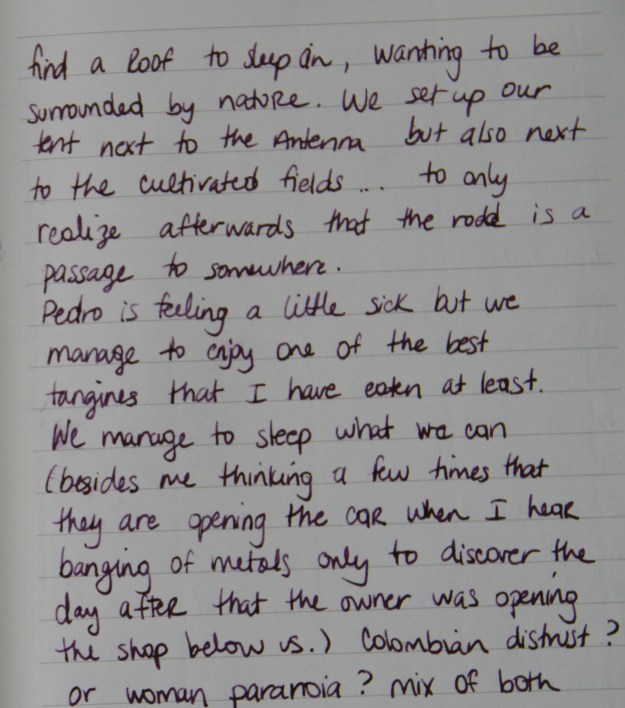 find a Roof to sleep in, wanting to be
surrounded by nature. We set up our
tent next to the Antenna but also next
to the cultivated fields... to only
realize afterwards that the road is a
passage to somewhere.
Pedro is feeling a little sick but we
manage to enjoy one of the best
tangines that I have eaten at least.
We manage to sleep what we can
(besides me thinking a few times that
they are opening the car when I hear
banging of metals only to discover the
day after that the owner was opening
the shop below us.) Colombian distrust?
or woman paranoia? mix of both